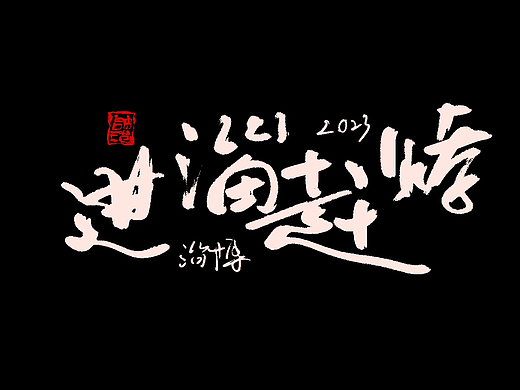 2023
进淄赶烤
淄博